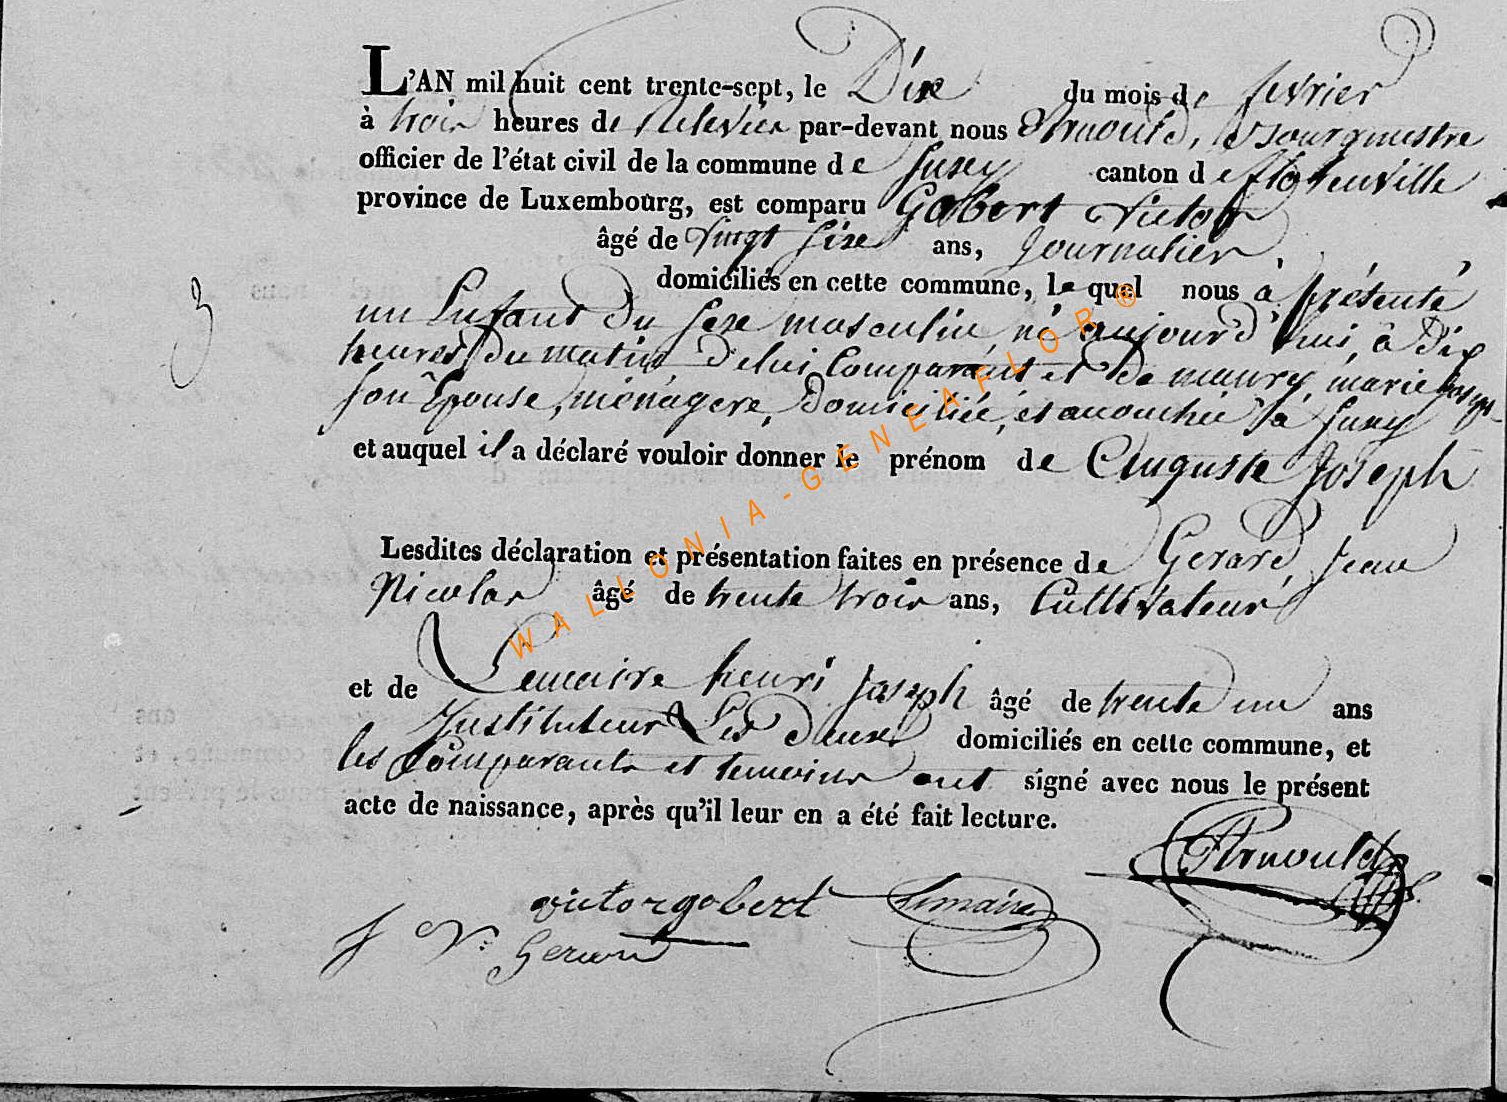 3
L'AN mil huit cent trente-sept, le Dix du mois de fevrier
à trois heures de Relevée par-devant nous Arnould, Bourgmestre
officier de l'état civil de la commune de Suxy canton de florenville
province de Luxembourg, est comparu Gobert Victor
âgé de vingt sixe ans, Journalier,
domiciliés en cette commune, le quel nous à présenté
un Enfant Du sexe masculin, né aujourd'hui, à dix
heures du matin De lui Comparant et De maury, marie
son Epouse, ménagere, Domiciliée, et accouchée à Suxy
et auquel il a déclaré vouloir donner le prénom de Auguste Joseph
Lesdites déclaration et présentation faites en présence de Gerard, Jean
Nicolas âgé de trente trois ans, Cultivateur
et de Lemaire henri Joseph âgé de trente un ans
Instituteur Les Deux domiciliés en cette commune, et
les Comparants et temoins ont signé avec nous le présent
acte de naissance, après qu'il leur en a été fait lecture.
Arnould
victor gobert Lemaire
J N: Gerard
WALLONIA-GENEAFLOR®